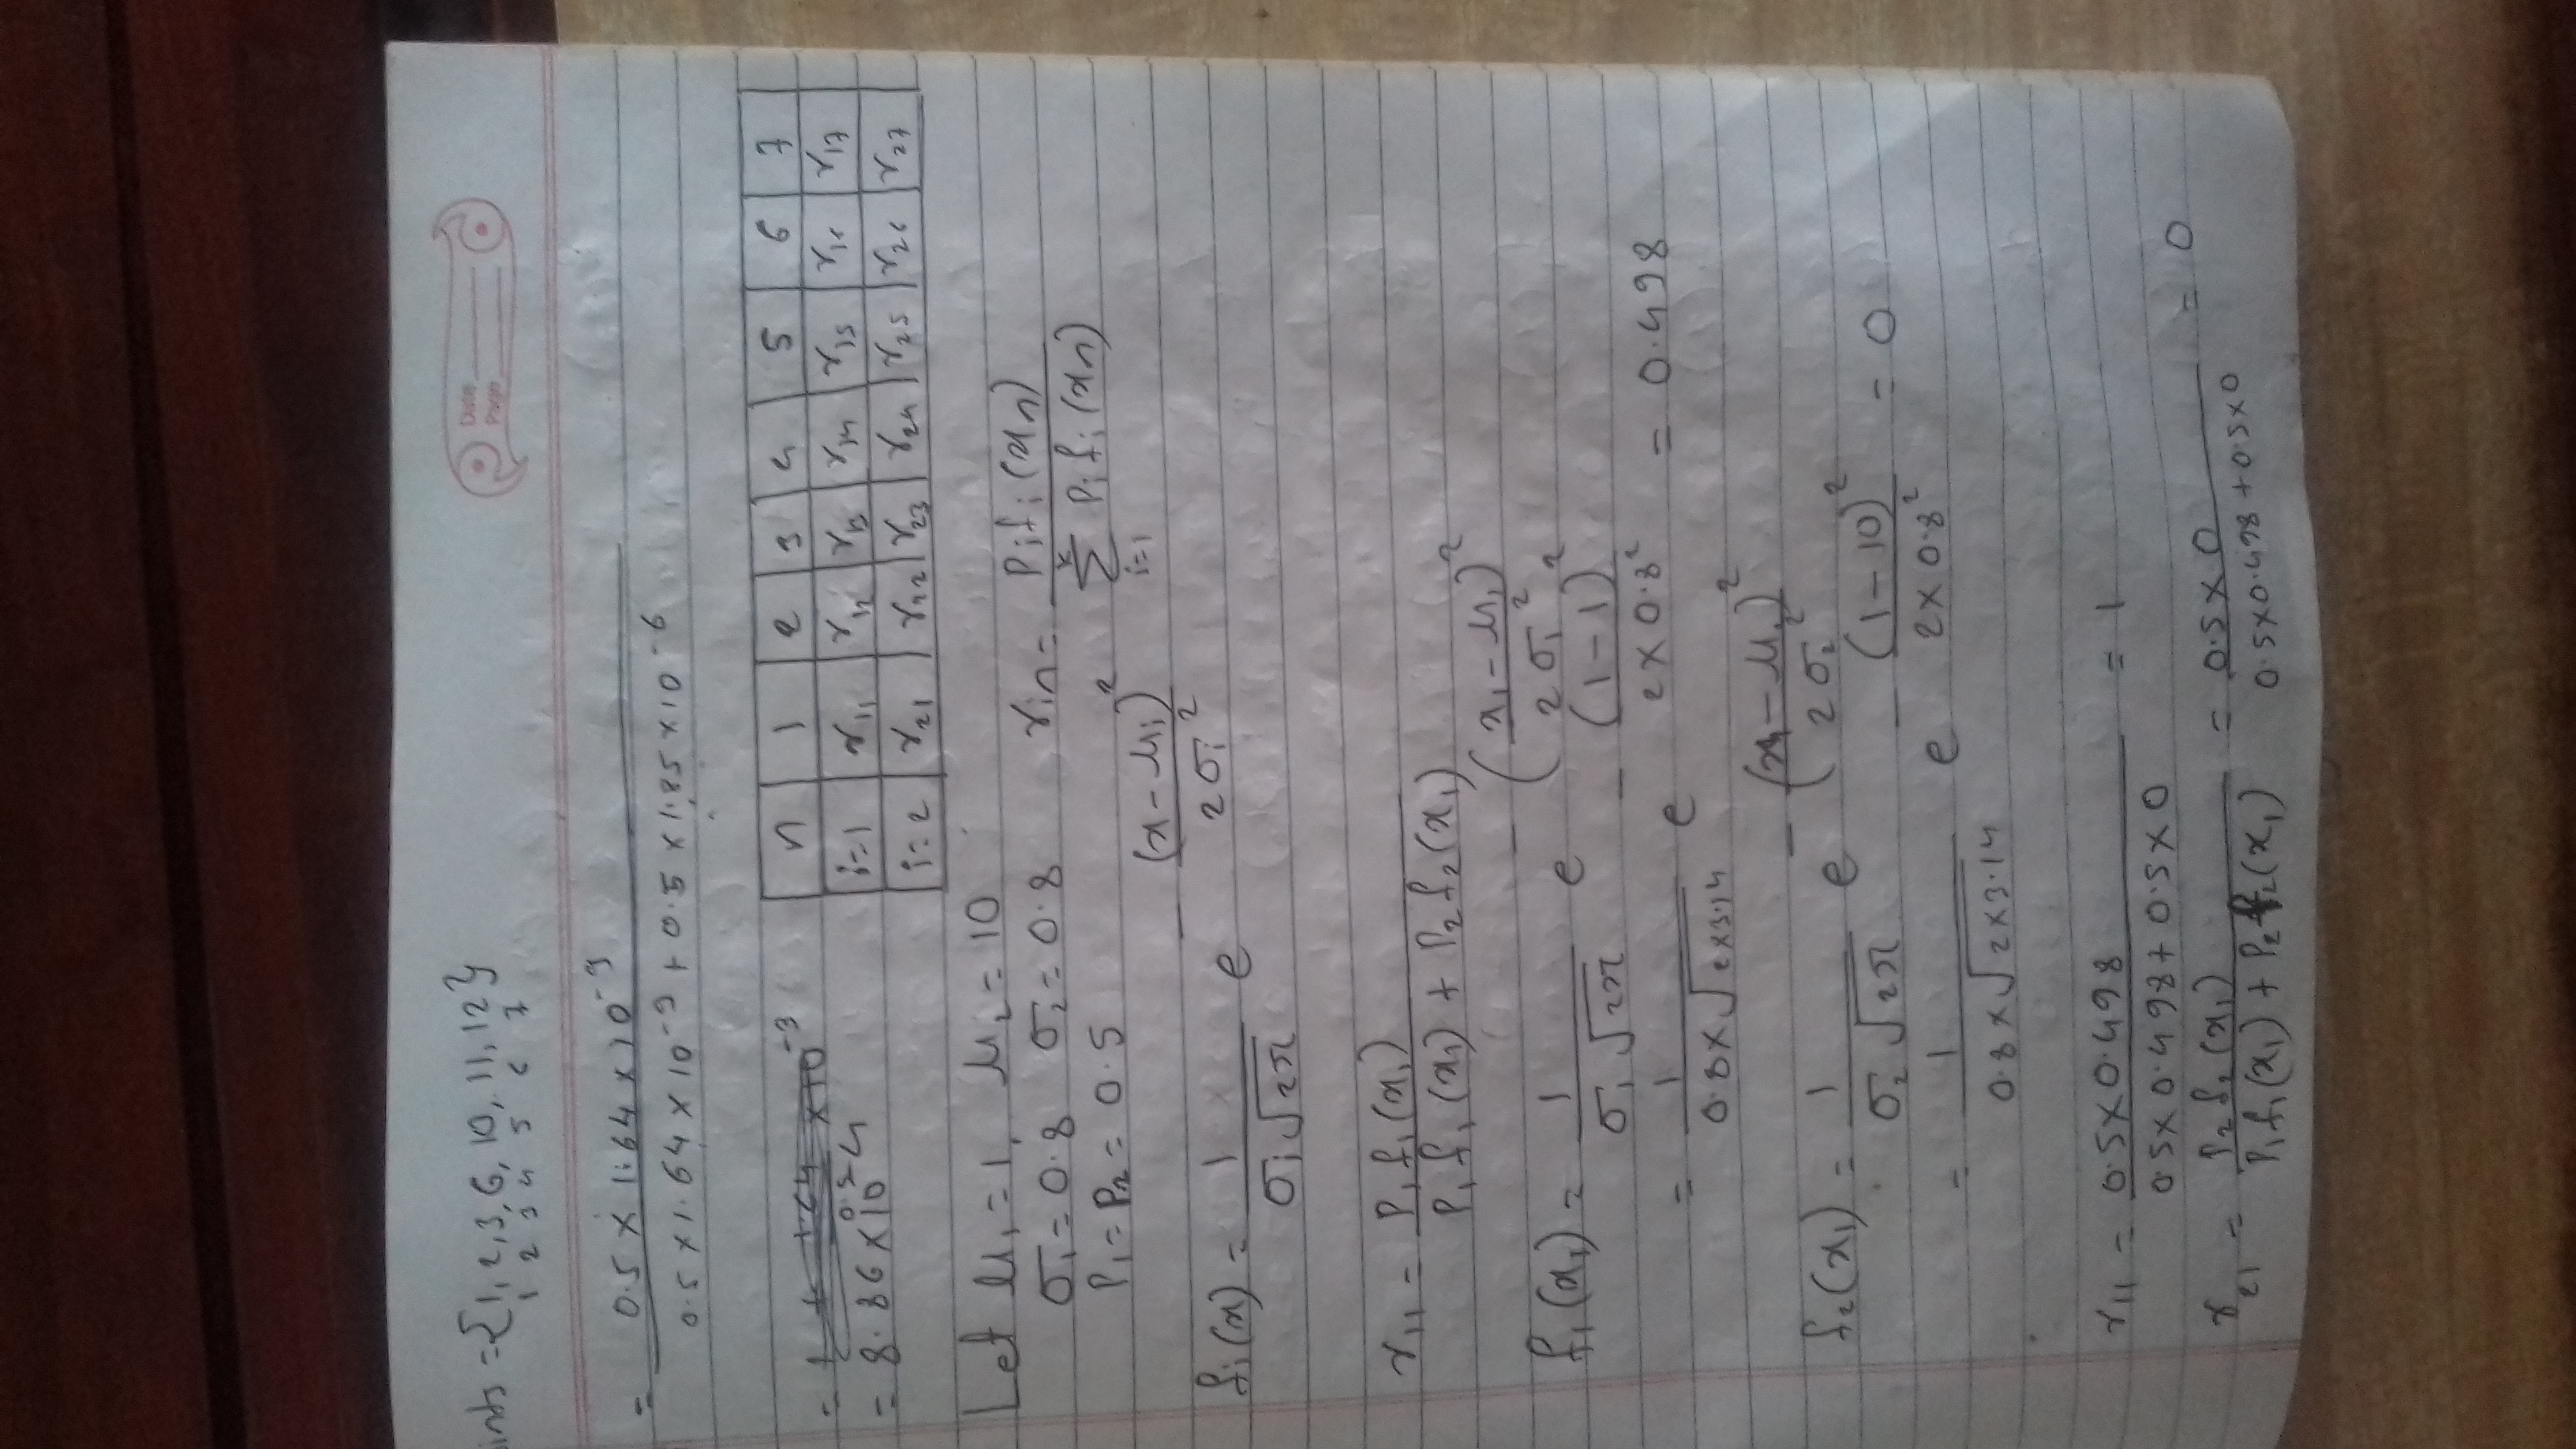 ints = {1, 2, 3, 6, 10, 11, 12}
1 2 3 4 5 6 7
Date
Page
= 0.5 × 1.64 × 10^-9 / 0.5 × 1.64 × 10^-9 + 0.5 × 1.85 × 10^-6
= 8.86 × 10^-4
n 1 2 3 4 5 6 7
i=1 r11 r12 r13 r14 r15 r16 r17
i=2 r21 r22 r23 r24 r25 r26 r27
Let μ1 = 1, μ2 = 10
σ1 = 0.8 σ2 = 0.8
P1 = P2 = 0.5
rin = Pi fi (xn) / Σ_{i=1}^{k} Pi fi (xn)
fi(x) = 1 / σi √2π e^ - (x - μi)^2 / 2σi^2
r11 = P1 f1 (x1) / P1 f1 (x1) + P2 f2 (x1)
f1 (x1) = 1 / σ1 √2π e^ - (x1 - μ1)^2 / 2σ1^2
= 1 / 0.8 × √2×3.14 e^ - (1-1)^2 / 2 × 0.8^2 = 0.498
f2 (x1) = 1 / σ2 √2π e^ - (x1 - μ2)^2 / 2σ2^2
= 1 / 0.8 × √2×3.14 e^ - (1-10)^2 / 2 × 0.8^2 = 0
r11 = 0.5 × 0.498 / 0.5 × 0.498 + 0.5 × 0 = 1
r21 = P2 f2 (x1) / P1 f1 (x1) + P2 f2 (x1) = 0.5 × 0 / 0.5×0.498 + 0.5×0 = 0